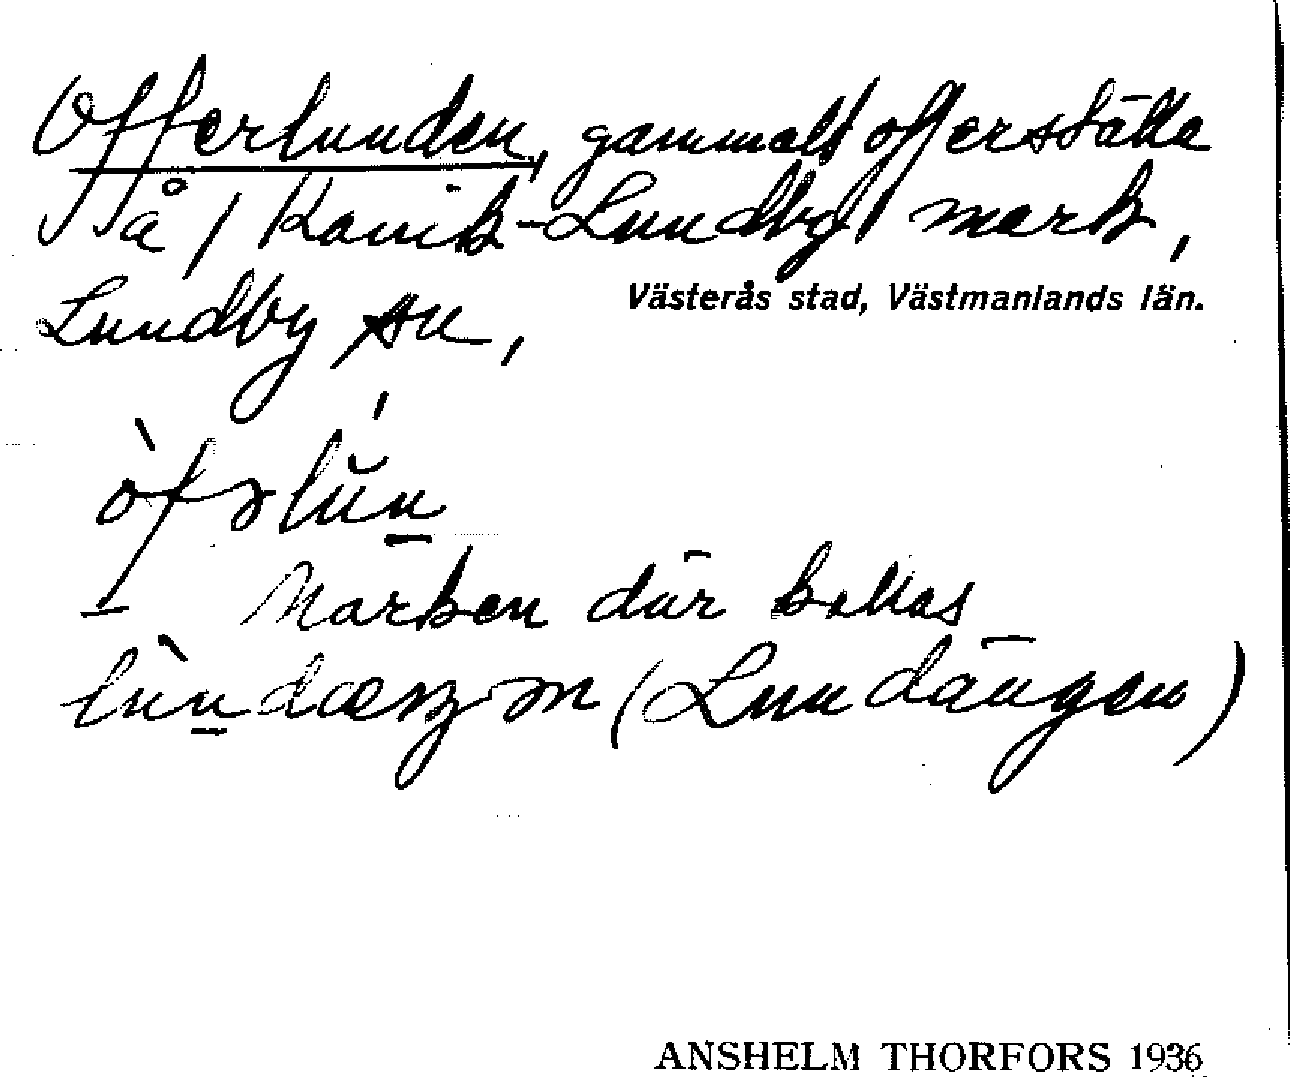 Offerlunden, gammalt offerställe
å / Hamik-Lundby / mark,
Lundby sn,
Västerås stad, Västmanlands län.
òfəlŭn
Marken där kallas
lùndæŋən (Lundängen)
ANSHELM THORFORS 1936